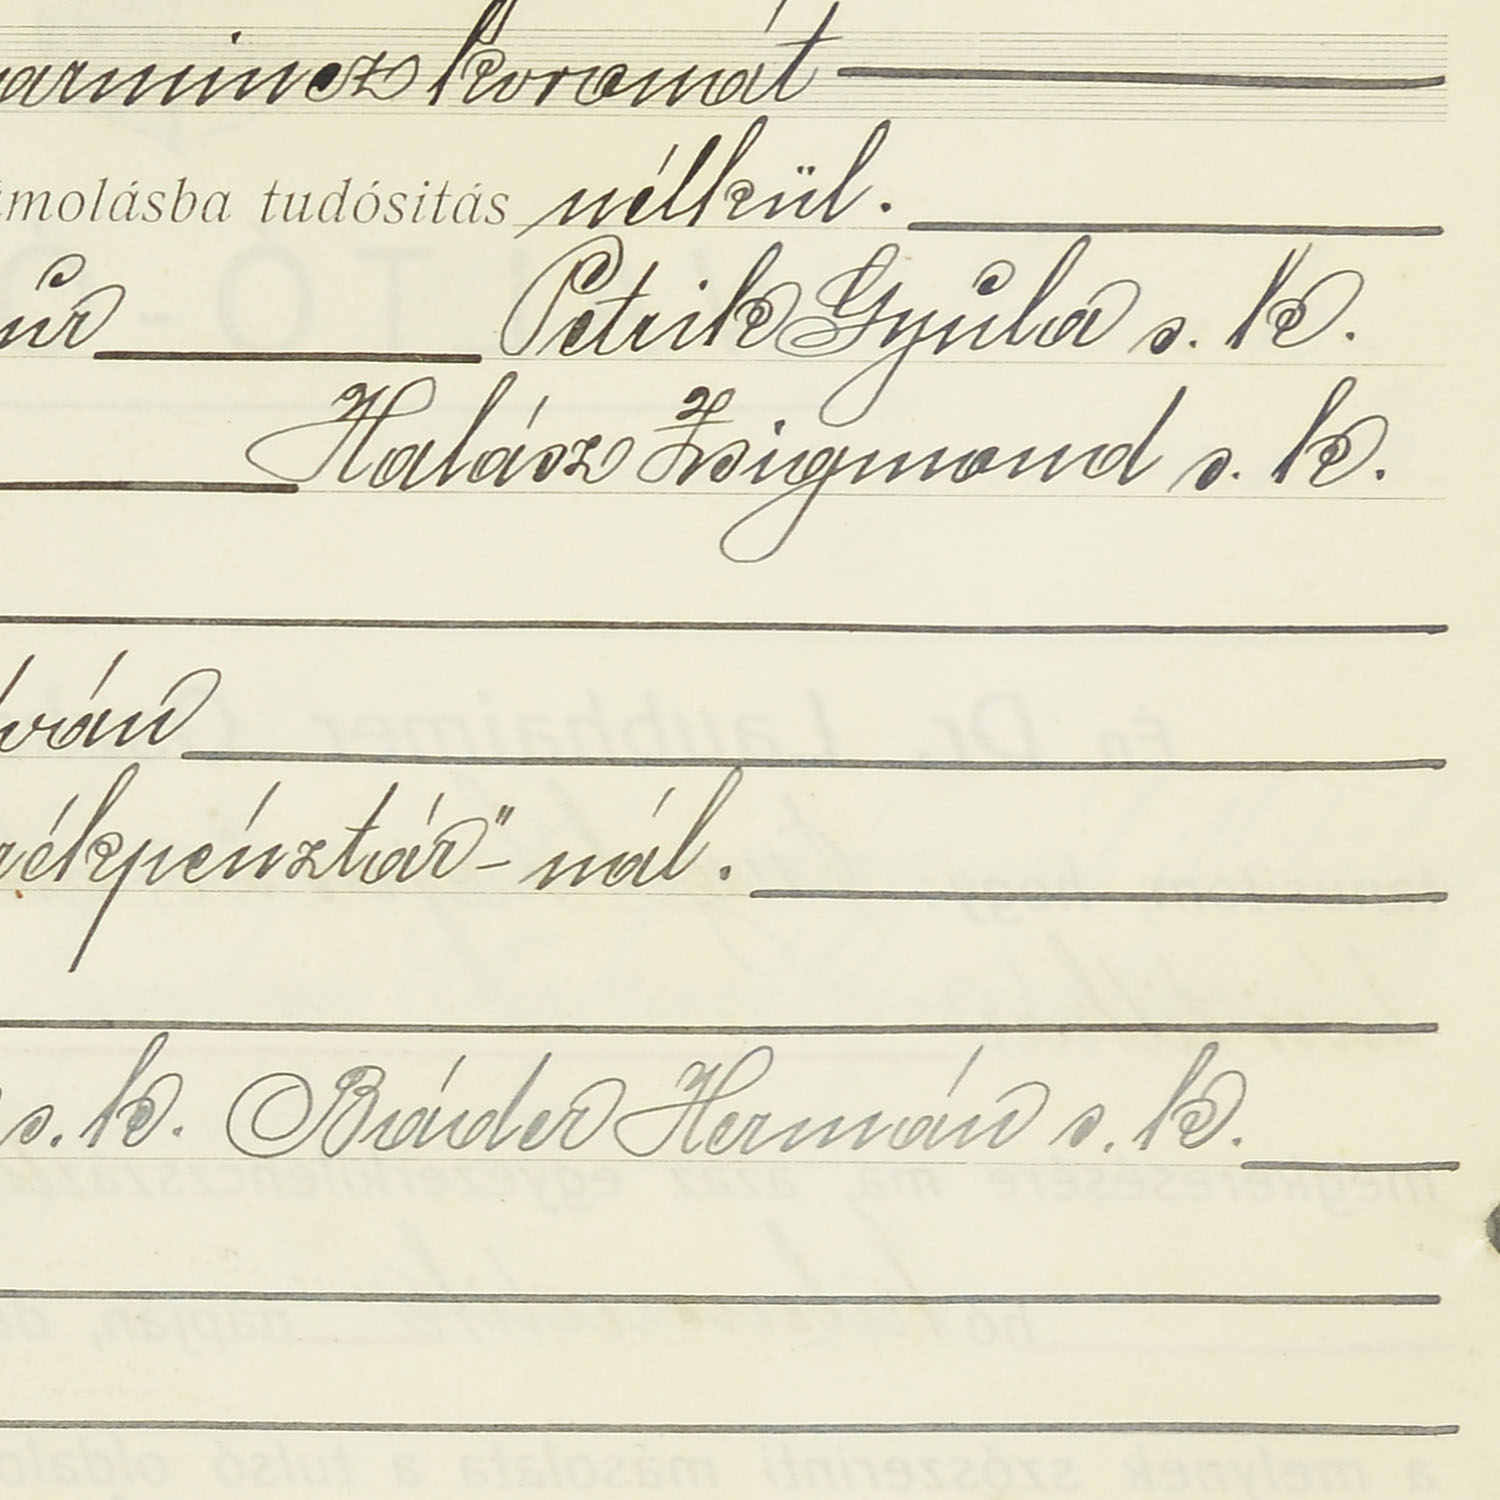 armincz koronát
ámolásba tudósitás nélkül.
úr Petrik Gyula s. k.
Halász Zsigmond s. k.
ván
rékpénztár"- nál.
s. k. Báder Hermán s. k.